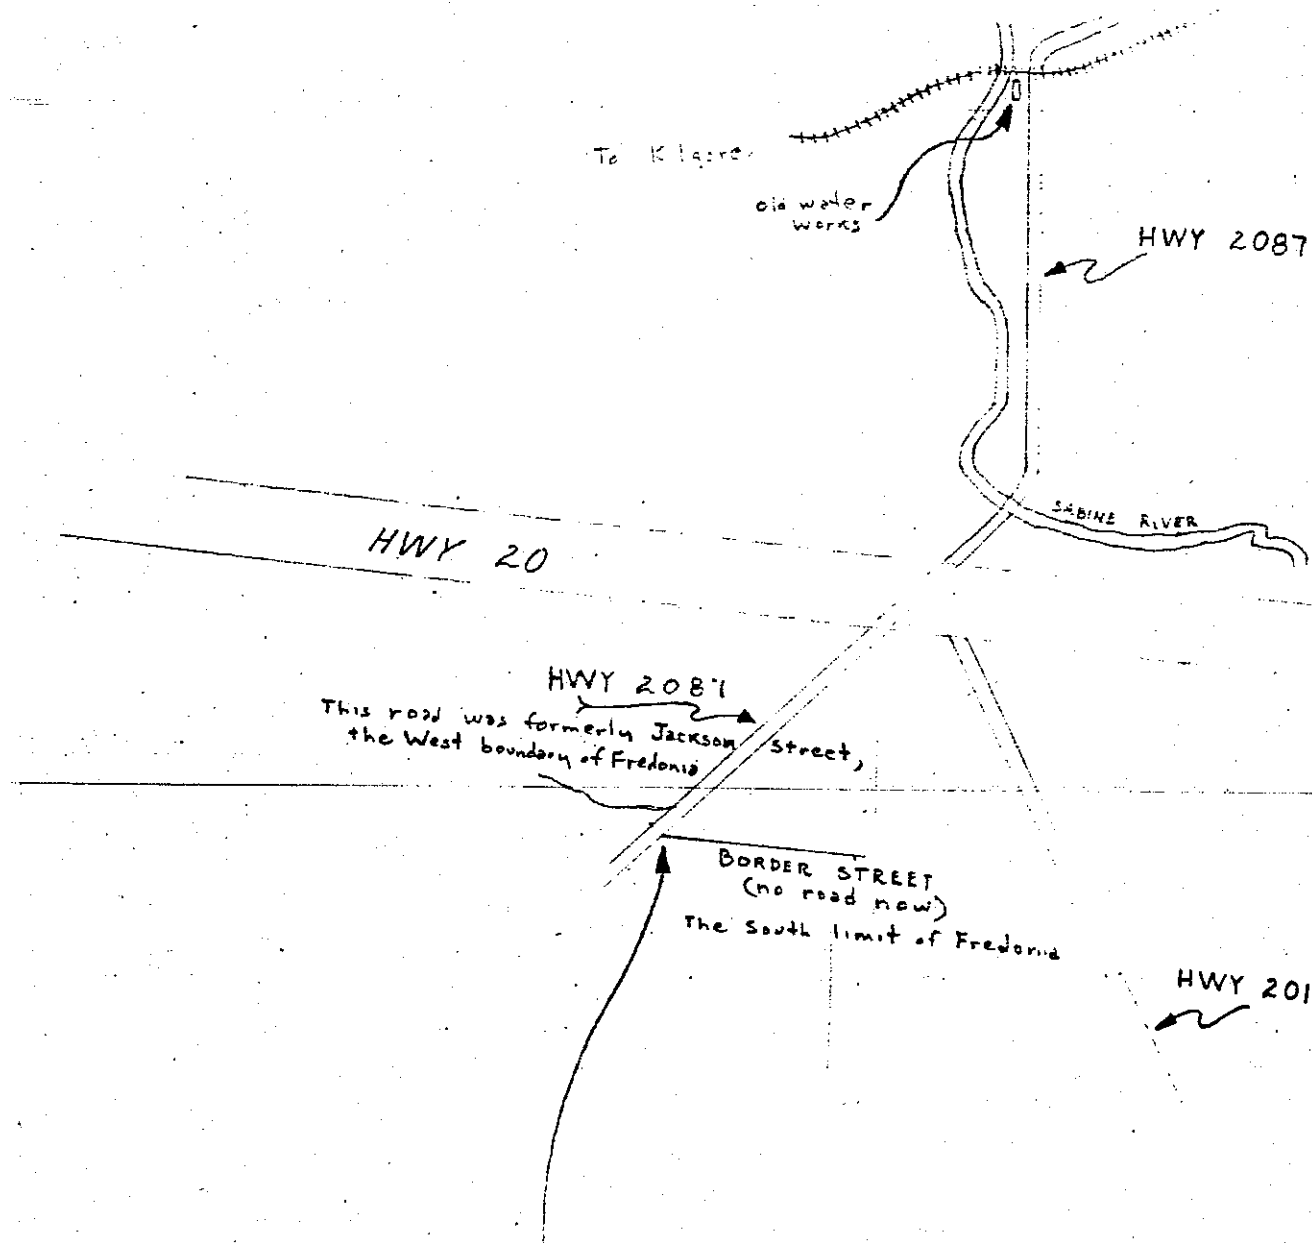 To Kilgore
old water
works
HWY 2087
SABINE RIVER
HWY 20
HWY 2087
This road was formerly Jackson street,
the West boundary of Fredonia
BORDER STREET
(no road now)
The South limit of Fredonia
HWY 201